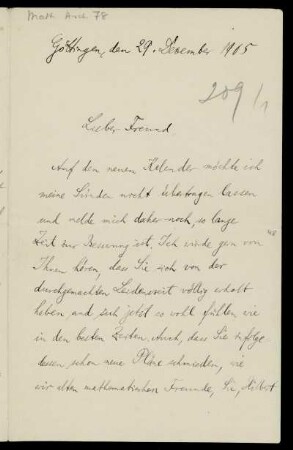 Math. Arch. 78
Göttingen, den 29. Dezember 1905
209/1
Lieber Freund,
Auf den neuen Kalender möchte ich
meine Sünden nicht übertragen lassen
und melde mich daher noch, so lange
Zeit zur Besserung ist. Ich würde gern von
Ihnen hören, dass Sie sich von der
durchgemachten Leidenszeit völlig erholt
haben, und sich jetzt so wohl fühlen wie
in den besten Zeiten. Auch, dass Sie infolge-
dessen schon neue Pläne schmieden, wie
wir alten mathematischen Freunde, Sie, Hilbert